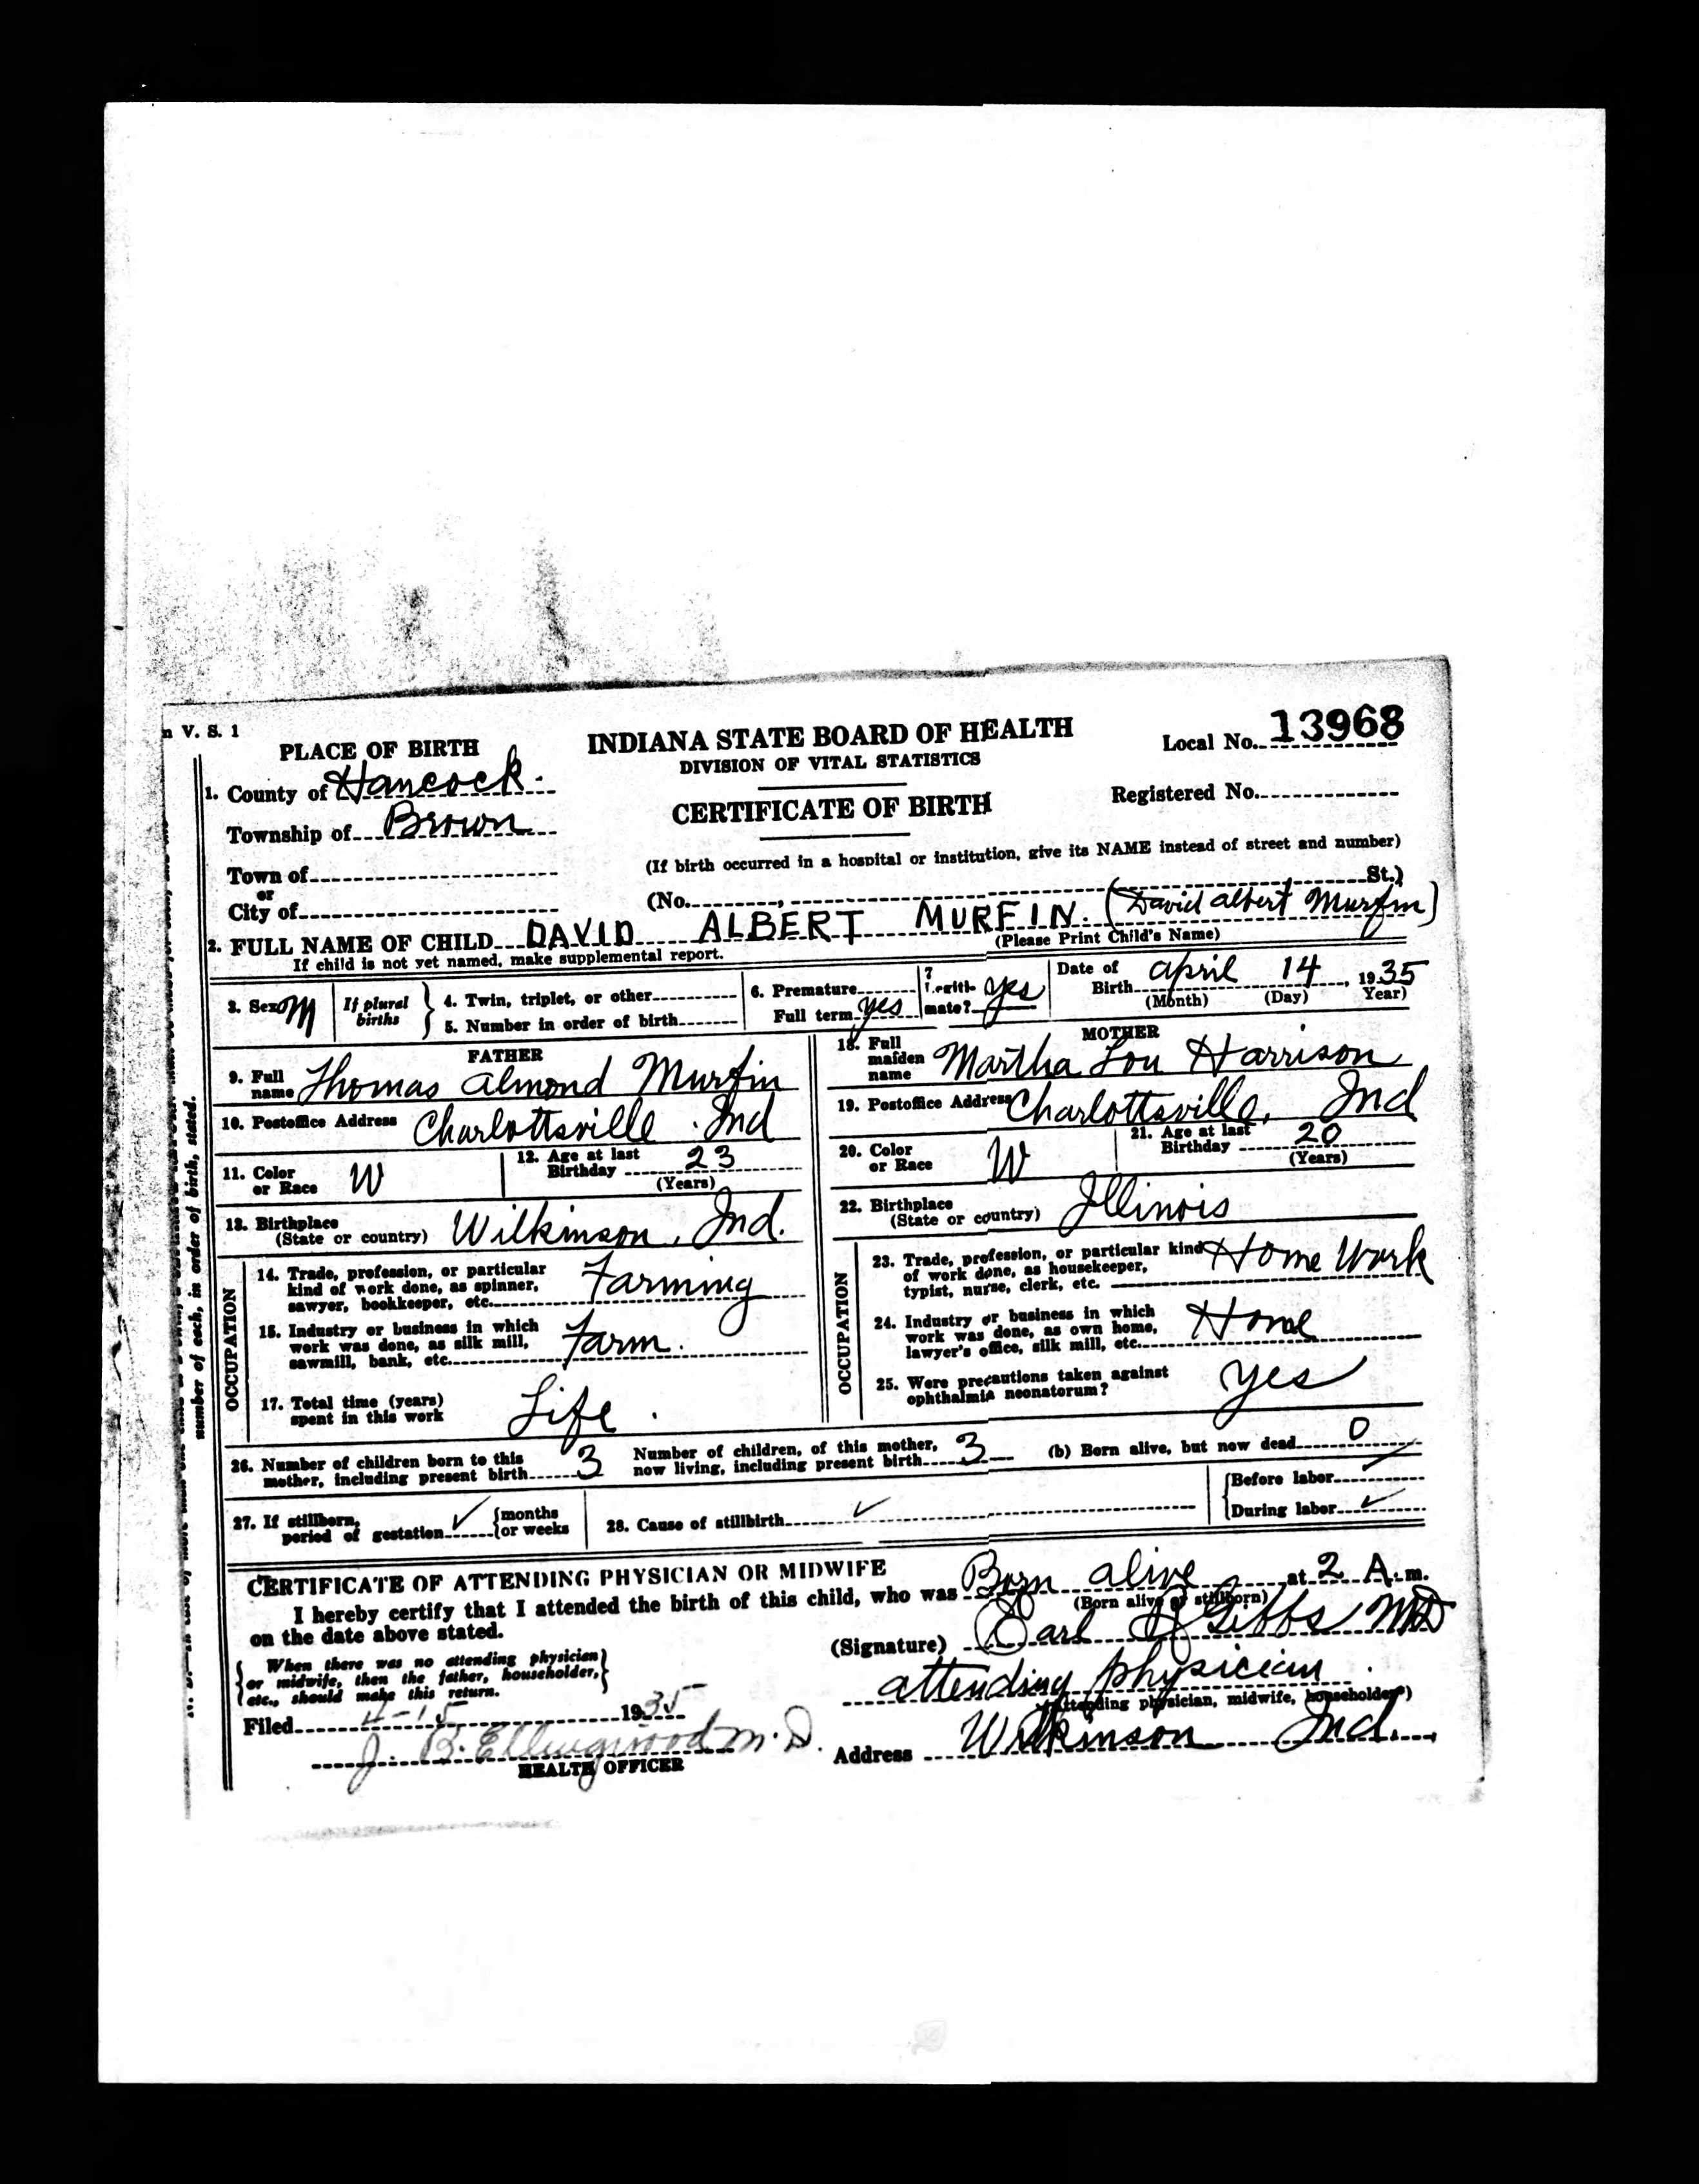 n V. S. 1
PLACE OF BIRTH
INDIANA STATE BOARD OF HEALTH
Local No. 13968
DIVISION OF VITAL STATISTICS
1. County of Hancock.
CERTIFICATE OF BIRTH
Registered No.
Township of Brown
(If birth occurred in a hospital or institution, give its NAME instead of street and number)
Town of
or
City of
(No. , St.)
2. FULL NAME OF CHILD DAVID ALBERT MURFIN. (David albert Murfin)
If child is not yet named, make supplemental report.
(Please Print Child's Name)
3. Sex M
If plural births
4. Twin, triplet, or other
5. Number in order of birth
6. Premature
Full term yes
7 Legiti- mate? yes
Date of Birth april 14, 1935
(Month) (Day) Year)
FATHER
9. Full name Thomas almond Murfin
10. Postoffice Address Charlottsville . Ind
11. Color or Race W
12. Age at last Birthday 23
(Years)
13. Birthplace
(State or country) Wilkinson, Ind.
OCCUPATION
14. Trade, profession, or particular
kind of work done, as spinner,
sawyer, bookkeeper, etc. Farming
15. Industry or business in which
work was done, as silk mill,
sawmill, bank, etc. Farm.
17. Total time (years)
spent in this work Life.
MOTHER
18. Full maiden name Martha Lou Harrison
19. Postoffice Address Charlottsville, Ind
20. Color or Race W
21. Age at last Birthday 20
(Years)
22. Birthplace
(State or country) Illinois
OCCUPATION
23. Trade, profession, or particular kind
of work done, as housekeeper,
typist, nurse, clerk, etc. Home Work
24. Industry or business in which
work was done, as own home,
lawyer's office, silk mill, etc. Home
25. Were precautions taken against
ophthalmia neonatorum? yes
26. Number of children born to this
mother, including present birth 3
Number of children, of this mother,
now living, including present birth 3
(b) Born alive, but now dead 0
27. If stillborn,
period of gestation ✓ {months or weeks
28. Cause of stillbirth ✓
{Before labor
During labor ✓
CERTIFICATE OF ATTENDING PHYSICIAN OR MIDWIFE
I hereby certify that I attended the birth of this child, who was Born alive at 2 A. m.
(Born alive or stillborn)
on the date above stated.
{When there was no attending physician
or midwife, then the father, householder,
etc., should make this return.}
(Signature) Earl Gibbs MD
attending physician
(Attending physician, midwife, householder)
Filed 4-15 1935
J. B. Ellingwood M.D.
HEALTH OFFICER
Address Wilkinson Ind.
number of each, in order of birth, stated.